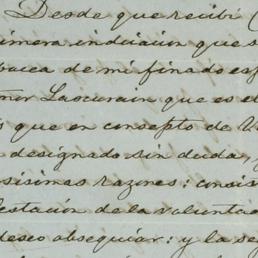 Desde que recibí
primera indicacion que s
busca de mi finado esp
ñor Lascurain que es el
s que en consepto de V
designado sin duda,
sisimas razones: consis
estacion de la voluntad
deseo obsequiar: y la se